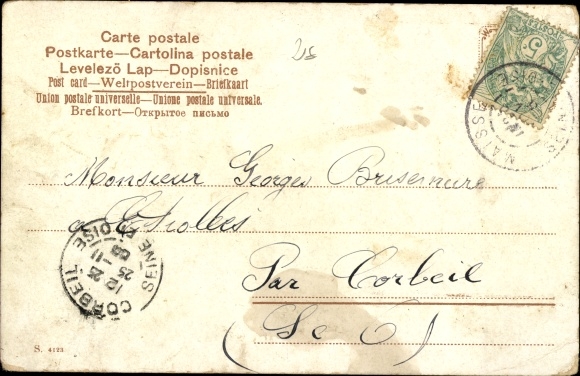 Carte postale
Postkarte—Cartolina postale
Levelező Lap—Dopisnice
Post card—Weltpostverein—Briefkaart
Union postale universelle—Unione postale universale.
Brefkort—Открытое письмо
5
MAISSE
Monsieur Georges Brisemure
a Etiolles
Par Corbeil
(S. e O)
CORBEIL
SEINE ET OISE
S. 4123